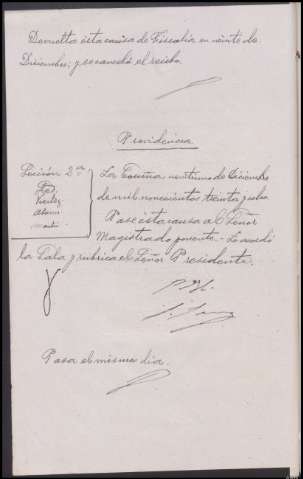 Devuelta esta causa de Fiscalía en veinte de
Diciembre; y se canceló el recibo.
Providencia
Sección 2ª
La Coruña veintiuno de Diciembre
de mil novecientos treinta y ocho
Pase esta causa al Señor
Magistrado ponente.- Lo acordó
la Sala y rubrica el Señor Presidente.
Pasa el mismo día.